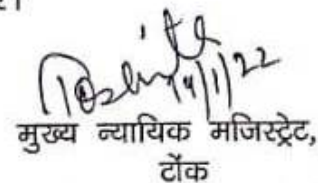 14/1/22
मुख्य न्यायिक मजिस्ट्रेट,
टोंक